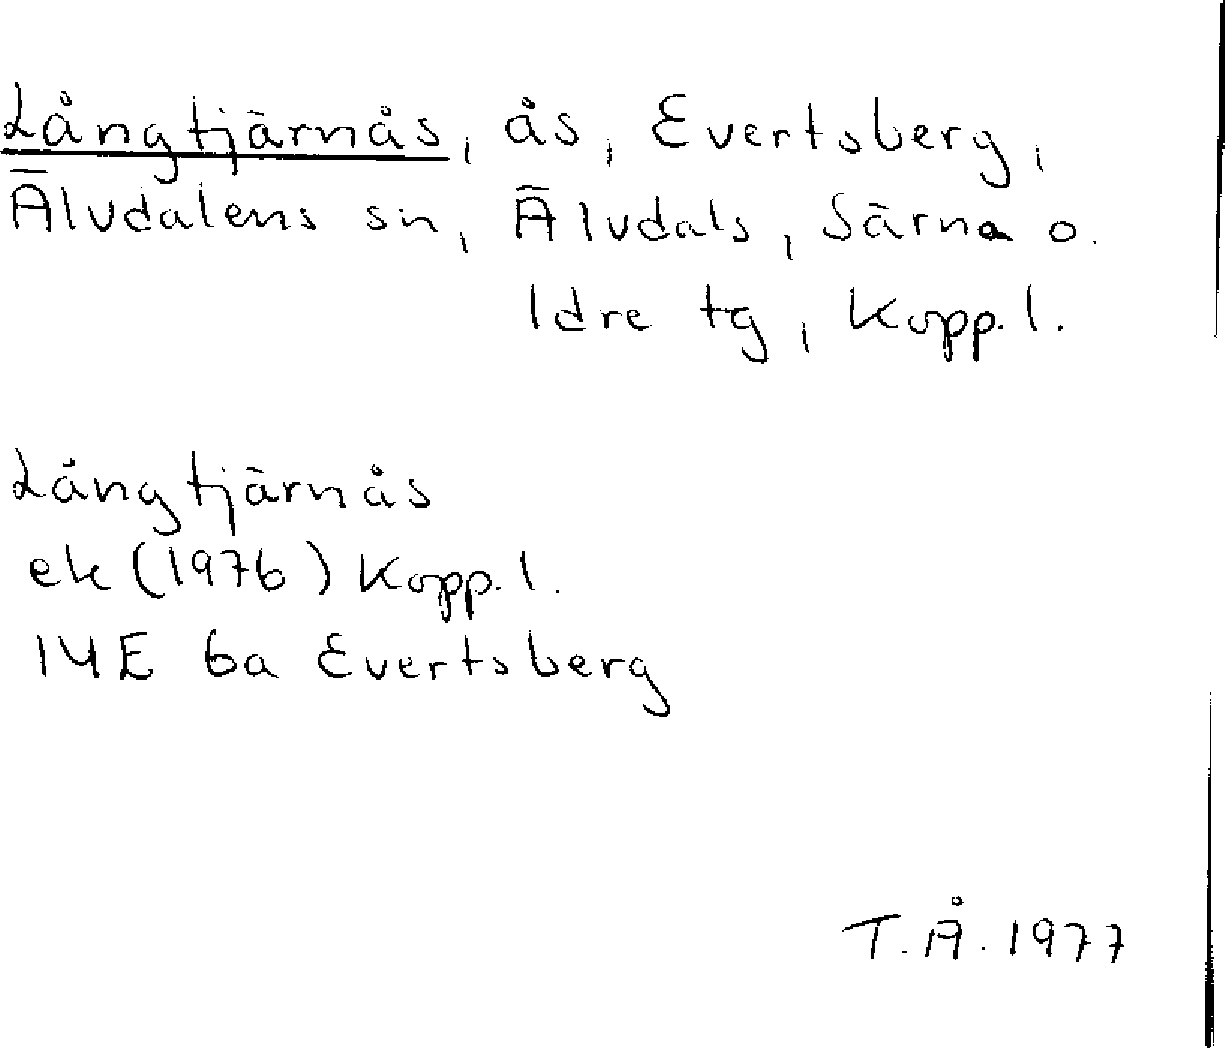 Långtjärnås, ås, Evertsberg,
Älvdalens sn, Älvdals, Särna o.
Idre tg, Kopp. l.
Långtjärnås
ek (1976) Kopp. l.
14E 6a Evertsberg
T.Å. 1977